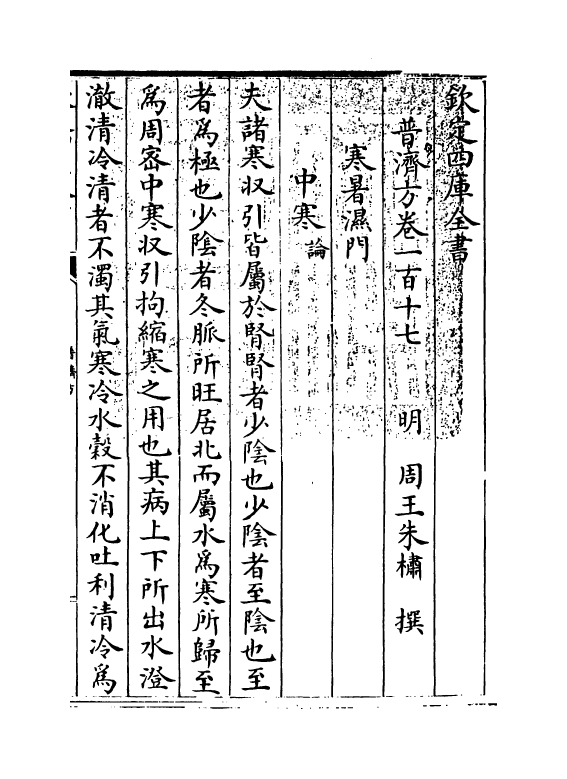 欽定四庫全書
普濟方卷一百十七　明　周王朱橚　撰
寒暑濕門
中寒論
夫諸寒収引皆屬於腎腎者少陰也少陰者至陰也至
者為極也少陰者冬脈所旺居北而屬水為寒所歸至
為周宻中寒収引拘縮寒之用也其病上下所出水澄
澈清冷清者不濁其氣寒冷水榖不消化吐利清冷為